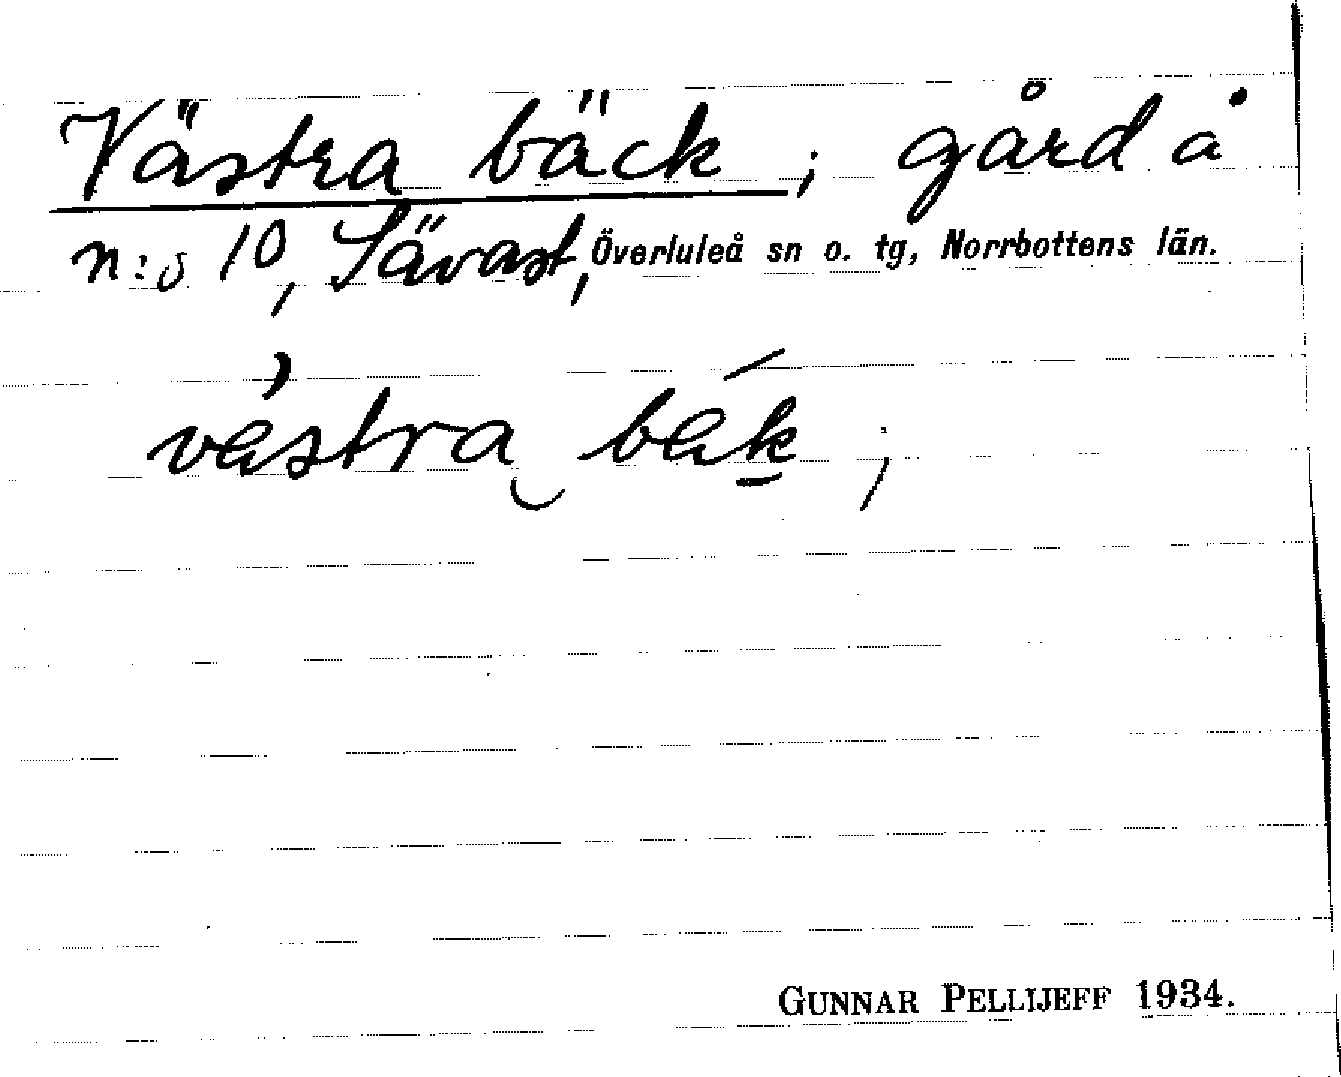 Västra bäck; gård å
n:o 10, Sävast, Överluleå sn o. tg, Norrbottens län.
västra bäk;
GUNNAR PELLIJEFF 1934.